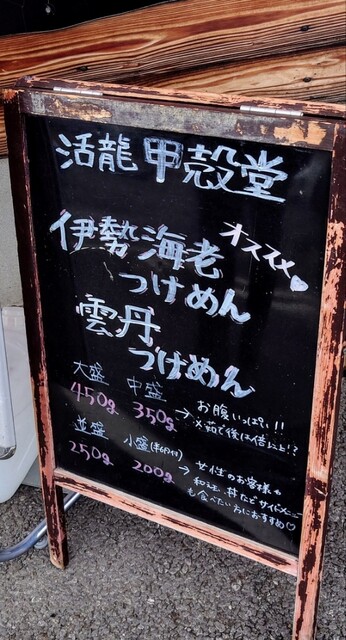 活龍 甲殻堂
オススメ
伊勢海老
つけめん
雲丹
つけめん
大盛 中盛
450g 350g → お腹いっぱい!!
※茹で後は倍以上!?
並盛 小盛(半個付)
250g 200g → 女性のお客様や
和え丼などサイドメニュー
も食べたい方におすすめ